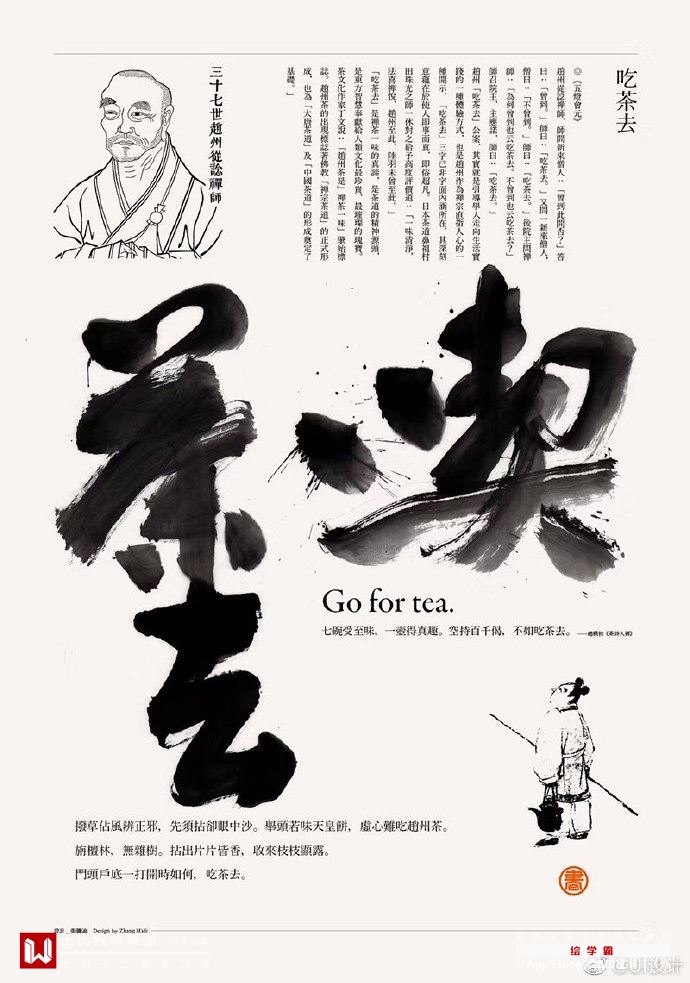 吃茶去
◎《五燈會元》
趙州從諗禪師，師問新來僧人：「曾到此間否？」答
曰：「曾到。」師曰：「吃茶去。」又問一新來僧人，
僧曰：「不曾到。」師曰：「吃茶去。」後院主問禪
師：「為何曾到也云吃茶去，不曾到也云吃茶去？」
師召院主，主應諾，師曰：「吃茶去。」
趙州「吃茶去」公案，其實就是引導學人走向生活實
踐的一種體驗方式，也是趙州作為禪宗直指人心的一
種開示，「吃茶去」三字已非字面內涵所在，其深刻
意蘊在於他人即事而真，即俗超凡。日本茶道鼻祖村
田珠光之師一休對之給予高度評價道：「一味清淨，
法喜禪悅，趙州至此，陸羽未曾至此。」
「吃茶去」是禪茶一味的真諦，是茶道的精神源頭，
是東方智慧奉獻給人類文化最珍貴、最璀璨的瑰寶。
茶文化作家丁文說：「趙州茶是」禪茶一味」肇始標
誌。趙州茶的出現標誌著佛教「禪宗茶道」的正式形
成，也為「大唐茶道」及「中國茶道」的形成奠定了
基礎。」
三十七世趙州從諗禪師
喫茶去
Go for tea.
七碗受至味，一壺得真趣。空持百千偈，不如吃茶去。——趙樸初《茶詩人禪》
撥草佔風辨正邪，先須拈卻眼中沙。舉頭若味天皇餅，虛心難吃趙州茶。
旃檀林，無雜樹。拈出片片皆香，收來枝枝顯露。
門頭戶底一打開時如何，吃茶去。
Design by Zhang Midi
绘学霸
@UI设计